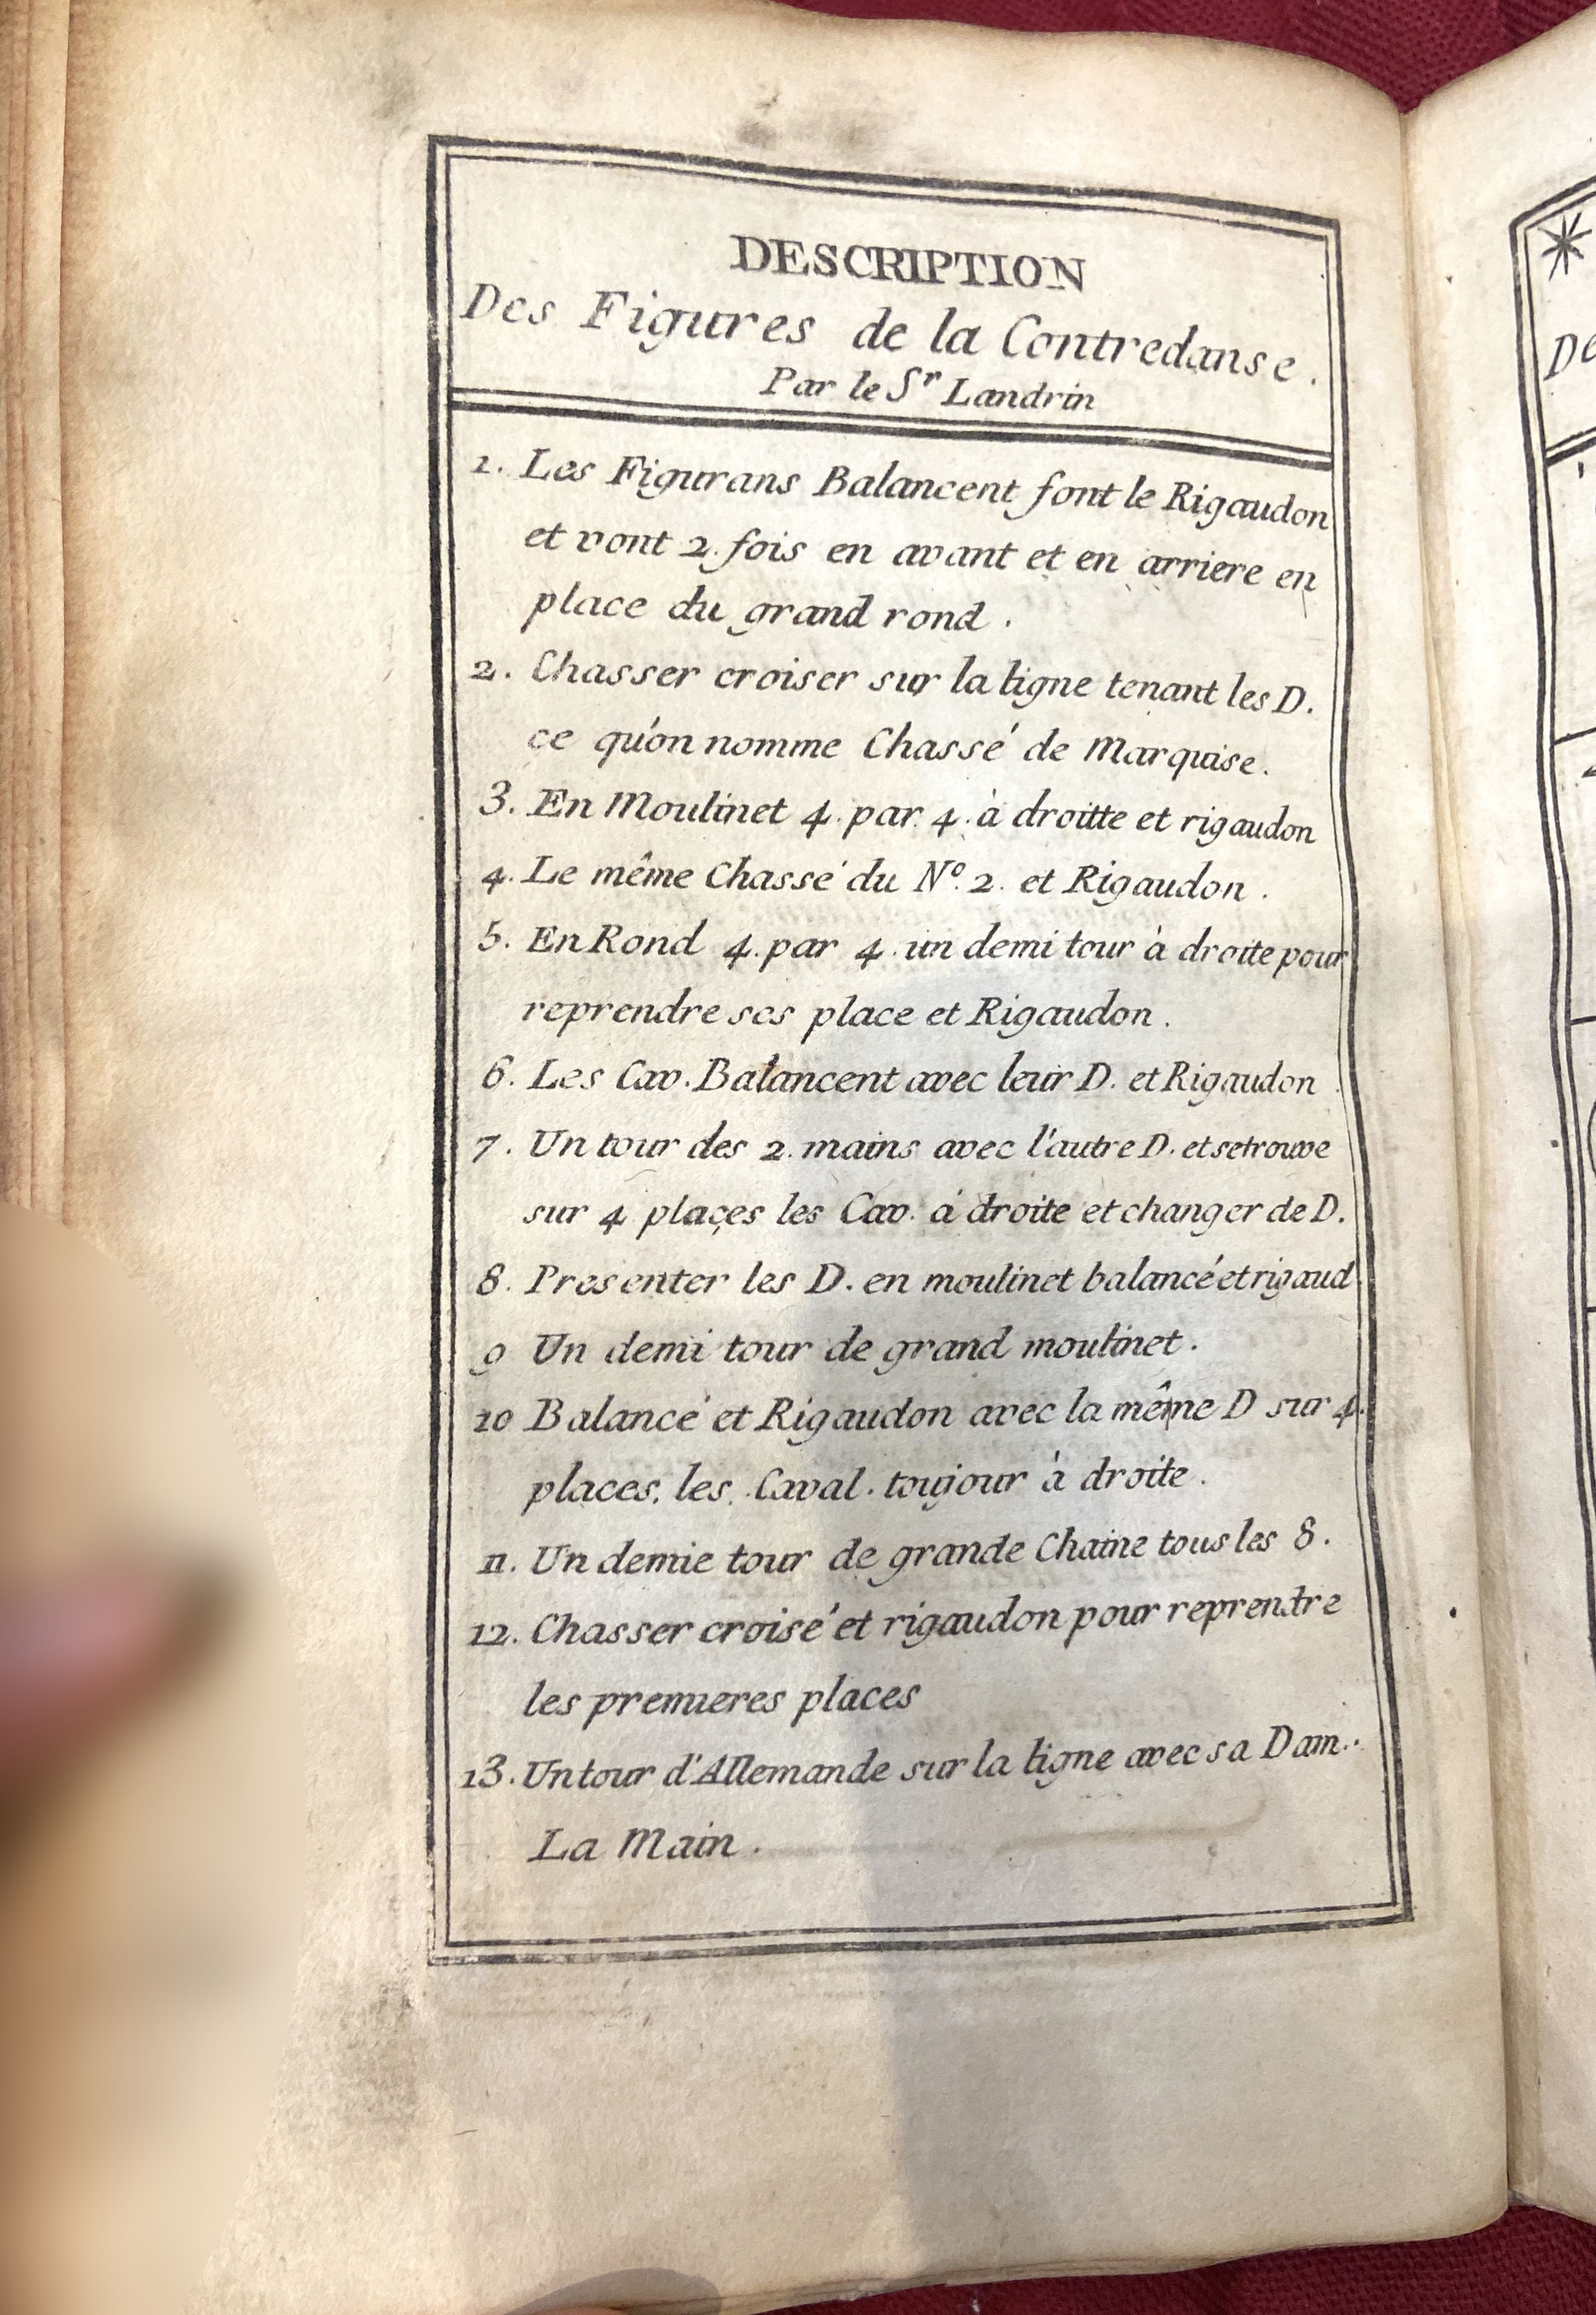 DESCRIPTION
Des Figures de la Contredanse.
Par le Sr Landrin
1. Les Figurans Balancent font le Rigaudon
et vont 2. fois en avant et en arriere en
place du grand rond.
2. Chasser croiser sur la ligne tenant les D.
ce qu'on nomme Chassé de Marquise.
3. En Moulinet 4. par. 4. à droitte et rigaudon
4. Le même Chassé du No. 2. et Rigaudon.
5. En Rond 4. par 4. un demi tour à droite pour
reprendre ses place et Rigaudon.
6. Les Cav. Balancent avec leur D. et Rigaudon
7. Un tour des 2. mains avec l'autre D. et se trouve
sur 4 places les Cav. à droite et changer de D.
8. Presenter les D. en moulinet balancé et rigaud.
9 Un demi tour de grand moulinet.
10 Balancé et Rigaudon avec la même D sur 4.
places, les. Caval. toujour à droite.
11. Un demie tour de grande Chaine tous les 8.
12. Chasser croisé et rigaudon pour reprendre
les premieres places
13. Un tour d'Allemande sur la ligne avec sa Dam..
La Main.
De